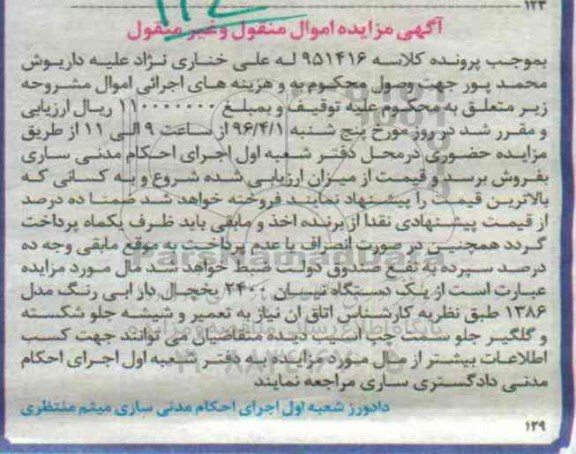 ۱۲۳
آگهی مزایده اموال منقول وغیر منقول
بموجب پرونده کلاسه ۹۵۱۴۱۶ له علی خناری نژاد علیه داریوش
محمد پور جهت وصول محکوم به و هزینه های اجرائی اموال مشروحه
زیر متعلق به محکوم علیه توقیف و بمبلغ ۱۱۰۰۰۰۰۰۰ ریال ارزیابی
و مقرر شد در روز مورخ پنج شنبه ۹۶/۴/۱ از ساعت ۹ الی ۱۱ از طریق
مزایده حضوری درمحل دفتر شعبه اول اجرای احکام مدنی ساری
بفروش برسد و قیمت از میزان ارزیابی شده شروع و به کسانی که
بالاترین قیمت را پیشنهاد نمایند فروخته خواهد شد ضمنا ده درصد
از قیمت پیشنهادی نقدا از برنده اخذ و مابقی باید ظرف یکماه پرداخت
گردد همچنین در صورت انصراف یا عدم پرداخت به موقع مابقی وجه ده
درصد سپرده به نفع صندوق دولت ضبط خواهد شد مال مورد مزایده
عبارت است از یک دستگاه نیسان ۲۴۰۰ یخچال دار ابی رنگ مدل
۱۳۸۶ طبق نظریه کارشناس اتاق ان نیاز به تعمیر و شیشه جلو شکسته
و گلگیر جلو سمت چپ اسیب دیده متقاضیان می توانند جهت کسب
اطلاعات بیشتر از مال مورد مزایده به دفتر شعبه اول اجرای احکام
مدنی دادگستری ساری مراجعه نمایند
دادورز شعبه اول اجرای احکام مدنی ساری میثم منتظری
۱۲۹
ParsNamadData